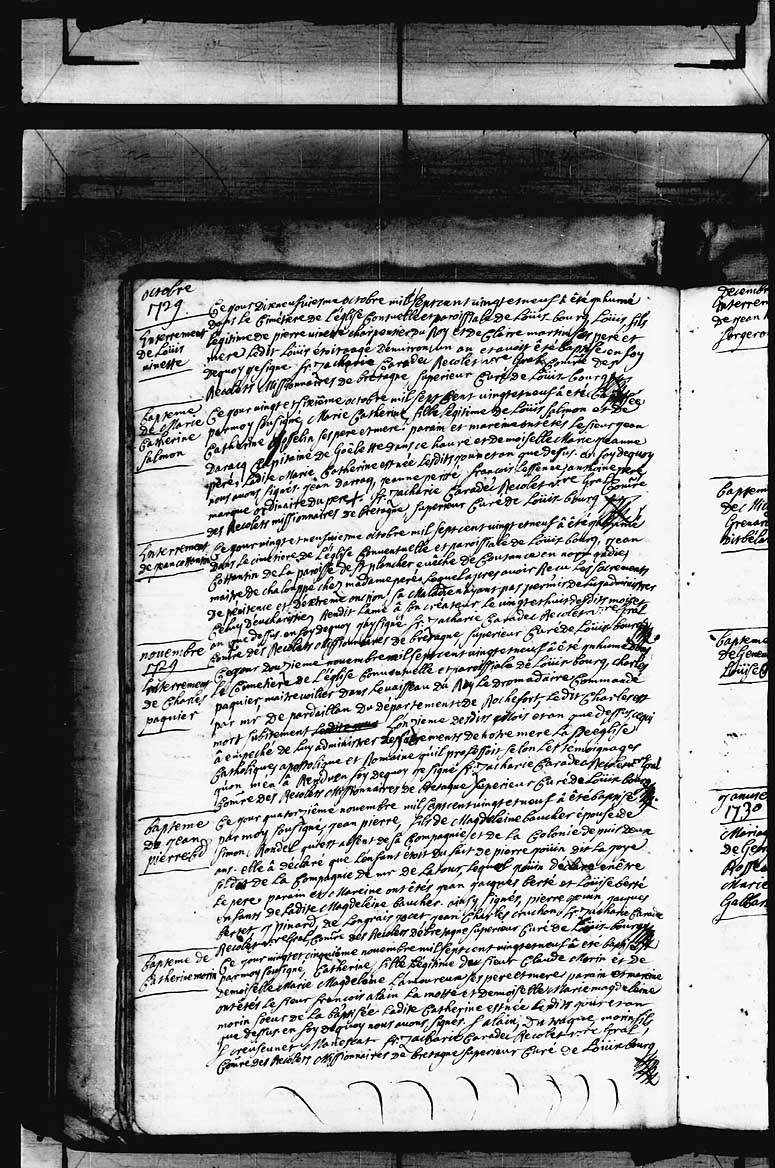 octobre
1729
Enterrement
de Loüis
vinette
Ce jour dixneufviesme octobre mil sept cent vingt et neuf a été inhumé
dans le Cimetère de L'église Conventuelle et paroissiale de Loüis bourg Loüis fils
legitime de pierre vinette charpentier du Roy et de Claire martin ses pere et
mere Ledit Loüis étoit agé d'environ un an et avoit été baptisé en foy
dequoy j'ay signé fr. Zacharie Caradec Recolet vre gral Comre des
Recolets Missionnaires de bretagne, superieur Curé de Loüis bourg
bapteme
de Marie
Catherine
Salmon
Ce jour vingt et sixiéme octobre mil sept cent vingt et neuf a été baptisée
par moy sousigné, Marie Catherine fille legitime de Loüis Salmon et de
Catherine Josselin ses pere et mere. parain et mareine ont étés Le sieur jean
daracq Capitaine de Goëlette dans ce havre et demoiselle Marie jeanne
peré, Ladite Marie Catherine est née Lesdits jour et an que dessus. en foy dequoy
nous avons signés. jean darracq, jeanne perré françois Lessenne janthoine peré
marque ordinaire du pere +. fr. Zacharie Caradec Recolet vre gral Comre
des Recolets missionnaires de bretagne superieur Curé de Loüis bourg
Enterrement
de jean Cottentin
Ce jour vingt et neufviesme octobre mil sept cent vingt et neuf a été inhumé
dans le cimetiere de L'église Conventuelle et paroissiale de Loüis bourg, jean
Cottentin de La paroisse de St plancher evêché de Coutance en normandie
maitre de chalouppe chez madame perée Lequel apres avoir Recu Les sacrements
de penitence et d'extreme onction, sa Maladie n'ayant pas permis de Luy administrer
Celuy d'eucharistie, Rendit L'ame à son créateur Le vingt et huit desdits mois et
an que dessus. en foy dequoy j'ay signé fr. Zacharie Caradec Recolet vre gral
Comre des Recolets Missionnaires de bretagne superieur Curé de Loüis bourg
novembre
1729
Enterrement
de Charles
paquier
Ce jour douzieme novembre mil sept cent vingt et neuf a été inhumé dans
Le Cimetiere de L'église Conventuelle et paroissiale de Loüis bourg, Charles
paquier, maitre voilier dans Le vaisseau du Roy Le dromadaire Commandé
par mr de pardaillan du département de Rochefort, Ledit Charles est
mort subitement L'onzieme desdits mois et an que dessus, ce qui
à empeché de Luy administrer Les sacrements de notre mere La Ste église
Catholique, apostolique et Romaine qu'il professoit selon Les temoignages
qu'on m'en à Rendu. en foy dequoy j'ay signé fr. Zacharie Caradec Recolet vre gral
Comre des Recolets Missionnaires de bretagne superieur Curé de Loüis bourg
bapteme
de jean
pierre
Ce jour quatorziéme novembre mil sept cent vingt et neuf à été baptisé
par moy sousigné, jean pierre, fils de Magdeleine baucher épouse de
Simon Rondel qui est absent de sa Compagnie et de La Colonie depuis deux
ans. elle à déclaré que L'enfant étoit du fait de pierre poüin dit La joye
soldat de La Compagnie de mr de La tour, Lequel poüin declare en être
Le pere parain et Mareine ont étés jean jacques berté et Loüise berté
enfants de Ladite Magdeleine baucher. ainsy signés, pierre poüin jacques
bertet, jean Charles cruchon, fr. Zacharie Caradec
Recolet vre gral Comre des Recolets de bretagne superieur Curé de Loüis bourg
bapteme de
Catherine morin
Ce jour vingt et cinquiéme novembre mil sept cent vingt et neuf à été baptisée
par moy sousigné, Catherine, fille Legitime du sieur Claude Morin et de
demoiselle Marie Magdeleine Lamoureux ses pere et mere parain et mareine
ont étés Le sieur françois alain La motte et demoiselle Marie magdeleine
morin soeur de La baptisée Ladite Catherine est née Lesdits jour et an
que dessus. en foy dequoy nous avons signés. f. alain, morin fils
fr. Zacharie Caradec Recolet vre gral
Comre des Recolets Missionnaires de bretagne superieur Curé de Loüis bourg
decembre
Enterrem
de jean
forgero
bapteme
de Mic
Grenar
bapteme
de Genev
Loüise
janvier
1730
Mariag
de
Marie
Galban